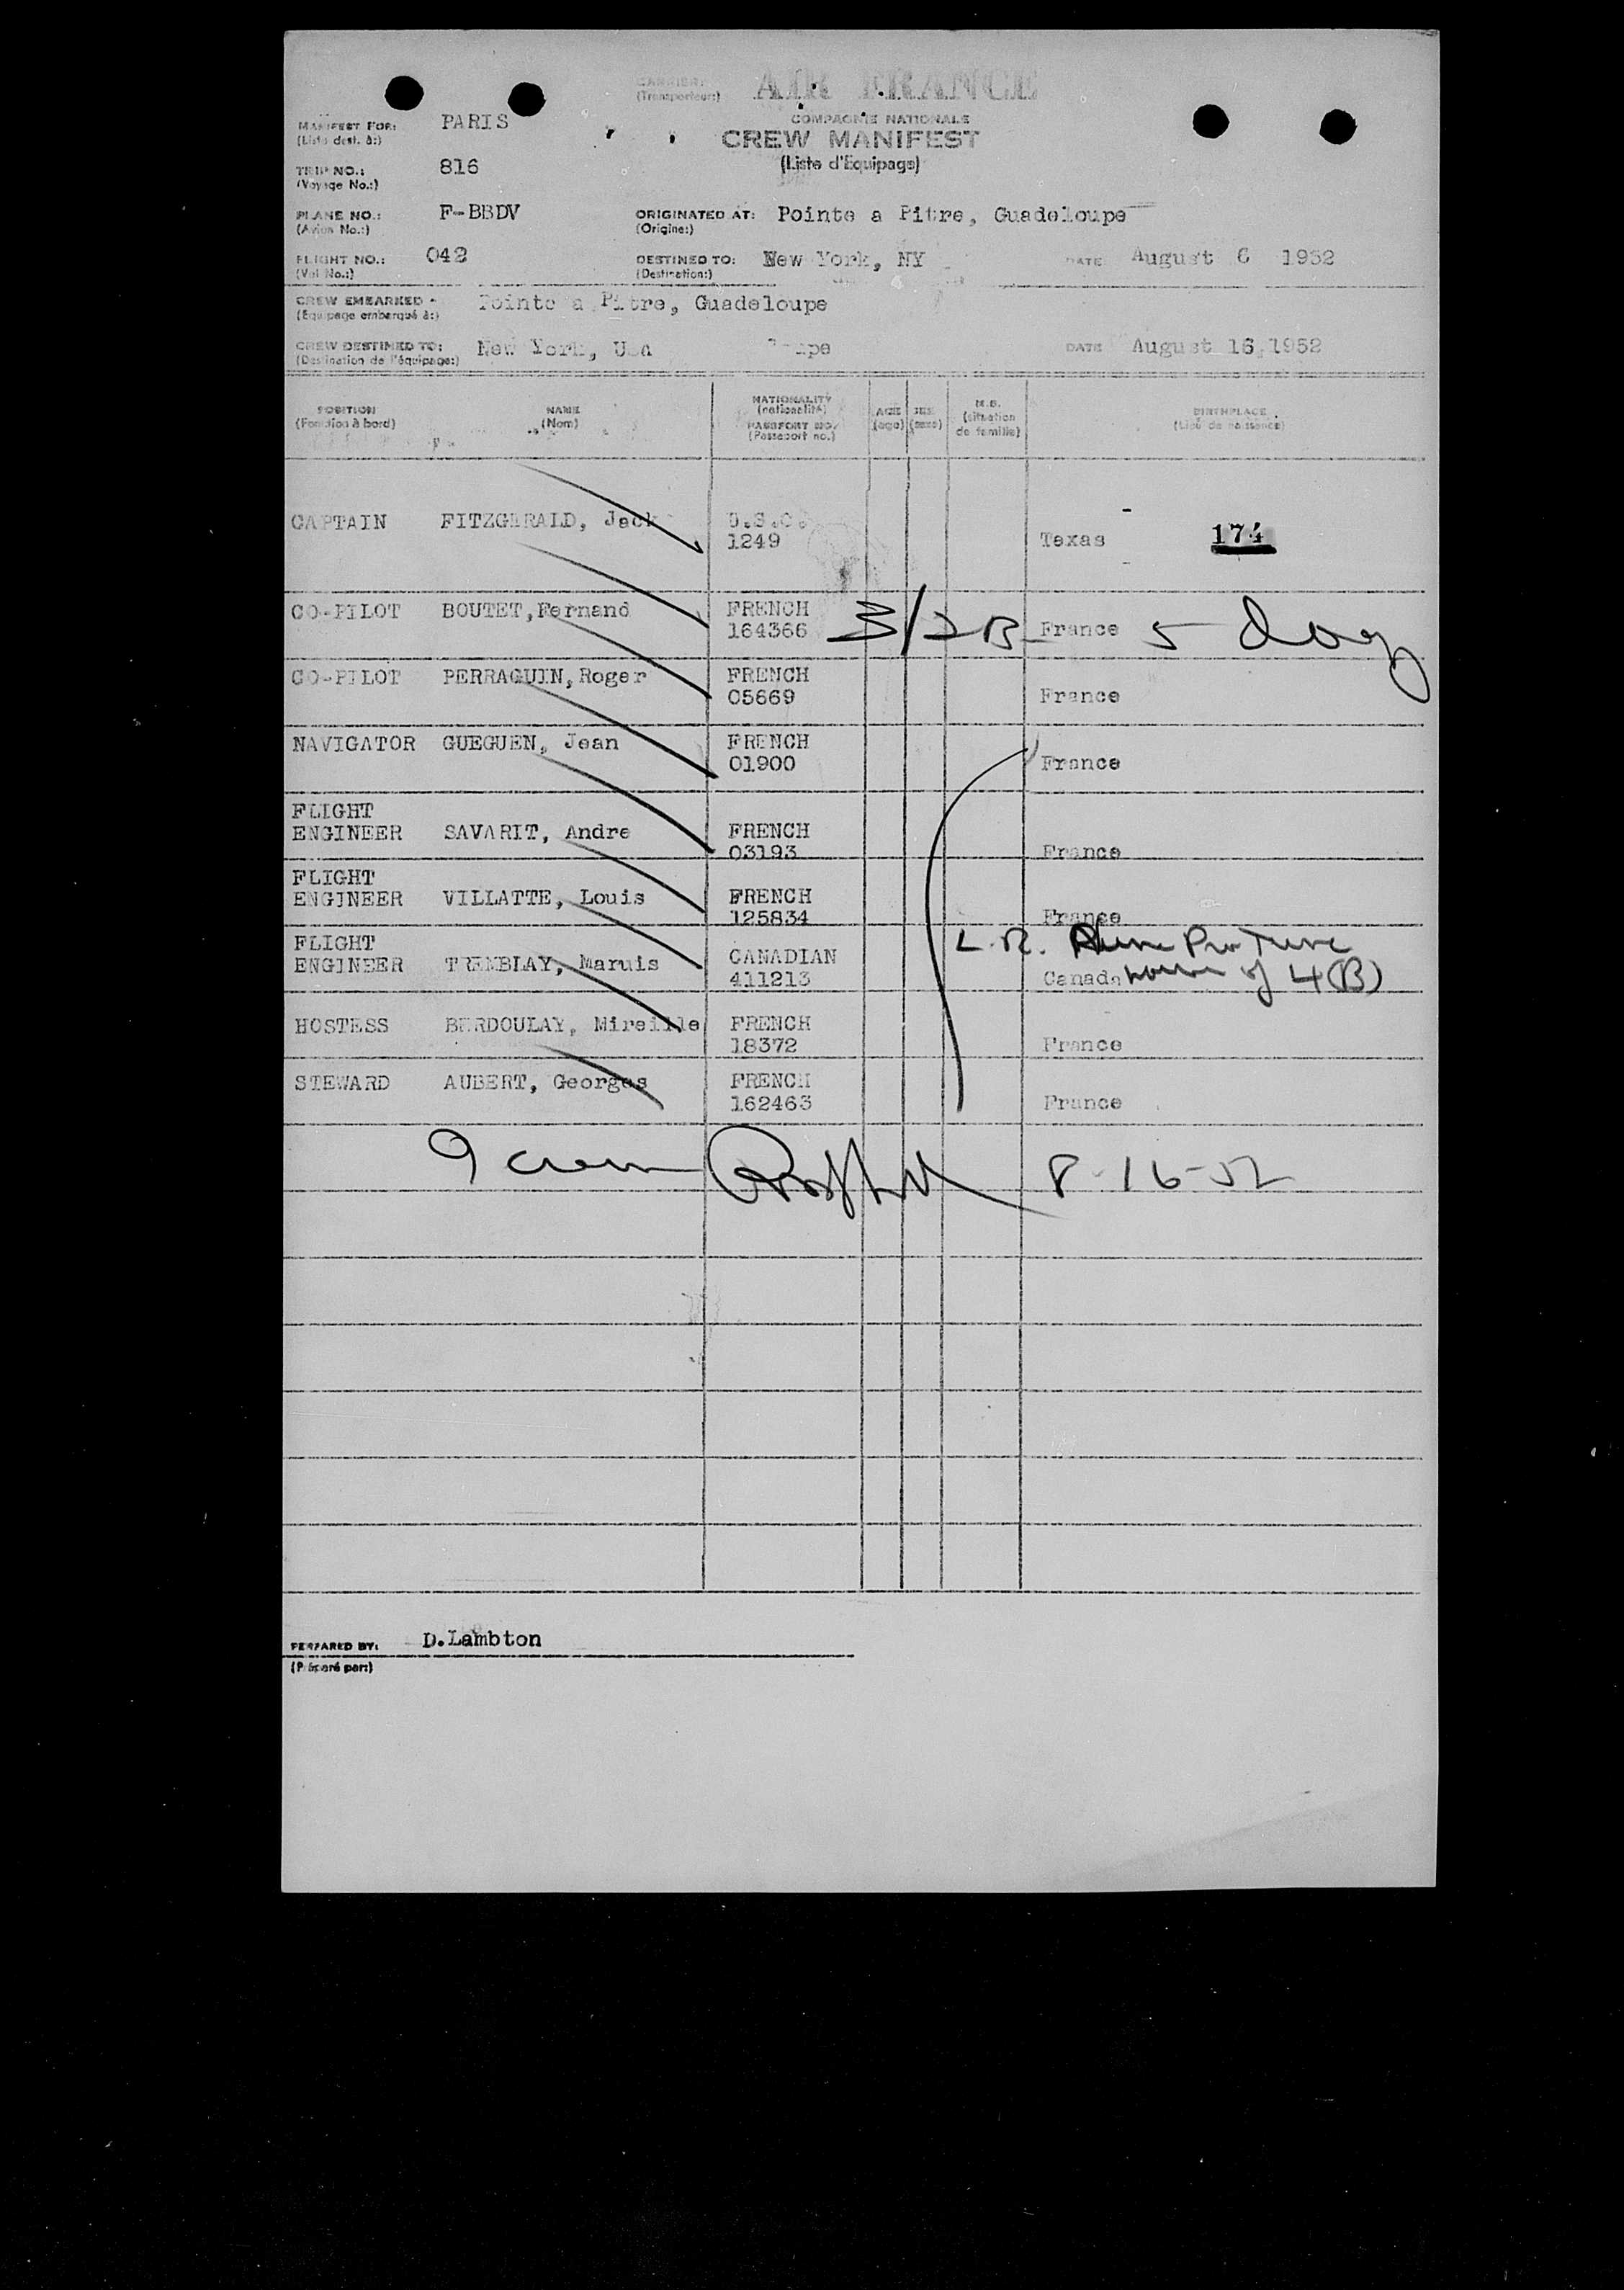 CARRIER: AIR FRANCE
(Transporteur:)
COMPAGNIE NATIONALE
MANIFEST FOR: PARIS
(Liste dest. à:)
CREW MANIFEST
(Liste d'Equipage)
TRIP NO.: 816
(Voyage No.:)
PLANE NO.: F-BBDV ORIGINATED AT: Pointe a Pitre, Guadeloupe
(Avion No.:) (Origine:)
FLIGHT NO.: 042 DESTINED TO: New York, NY DATE August 6 1952
(Vol No.:) (Destination:)
CREW EMBARKED - Pointe a Pitre, Guadeloupe
(Equipage embarqué à:)
CREW DESTINED TO: New York, Usa DATE August 16,1952
(Destination de l'équipage:)
POSITION NAME NATIONALITY AGE SEX M.S. BIRTHPLACE
(Fonction à bord) (Nom) (nationalité) (age) (sexe) (situation de famille) (Lieu de naissance)
PASSPORT NO.
(Passeport no.)
CAPTAIN FITZGERALD, Jack U.S.C.
1249 Texas 174
CO-PILOT BOUTET,Fernand FRENCH
164366 3/2B France 5 day
CO-PILOT PERRAGUIN,Roger FRENCH
05669 France
NAVIGATOR GUEGUEN, Jean FRENCH
01900 France
FLIGHT
ENGINEER SAVARIT, Andre FRENCH
03193 France
FLIGHT
ENGINEER VILLATTE, Louis FRENCH
125834 France
FLIGHT L.R.
ENGINEER TREMBLAY, Maruis CANADIAN
411213 Canada of 4(B)
HOSTESS BERDOULAY, Mireille FRENCH
18372 France
STEWARD AUBERT, Georges FRENCH
162463 France
9 crew 8-16-52
PERPARED BY: D.Lambton
(Préparé par:)